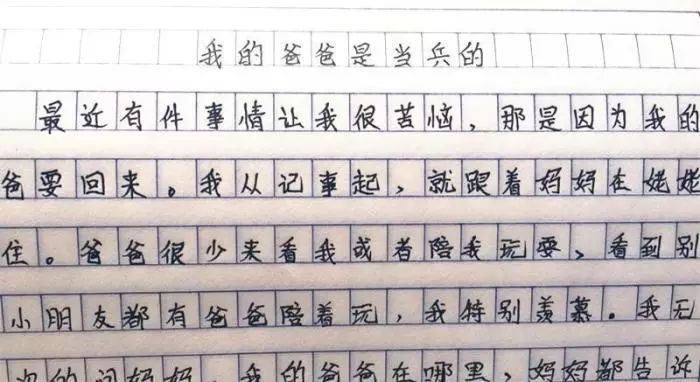 我的爸爸是当兵的
最近有件事情让我很苦恼，那是因为我的
爸要回来。我从记事起，就跟着妈妈在姥姥
住。爸爸很少来看我或者陪我玩耍、看到别
小朋友都有爸爸陪着玩，我特别羡慕。我无
次的问妈妈，我的爸爸在哪里，妈妈都告诉